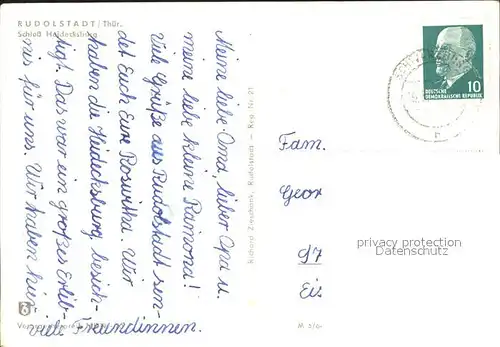 RUDOLSTADT/Thür.
Schloß Heidecksburg
Meine liebe Oma, lieber Opa u.
meine liebe kleine Ramona!
Viele Grüße aus Rudolstadt sen-
det Euch Eure Roswitha. Wir
haben die Heidecksburg besich-
tigt. Das war ein großes Erleb-
nis für uns. Wir haben hier
viele Freundinnen.
Reg. Nr. 21
DEUTSCHE
DEMOKRATISCHE REPUBLIK
10
Fam.
Geor
97
Eis
privacy protection
Datenschutz